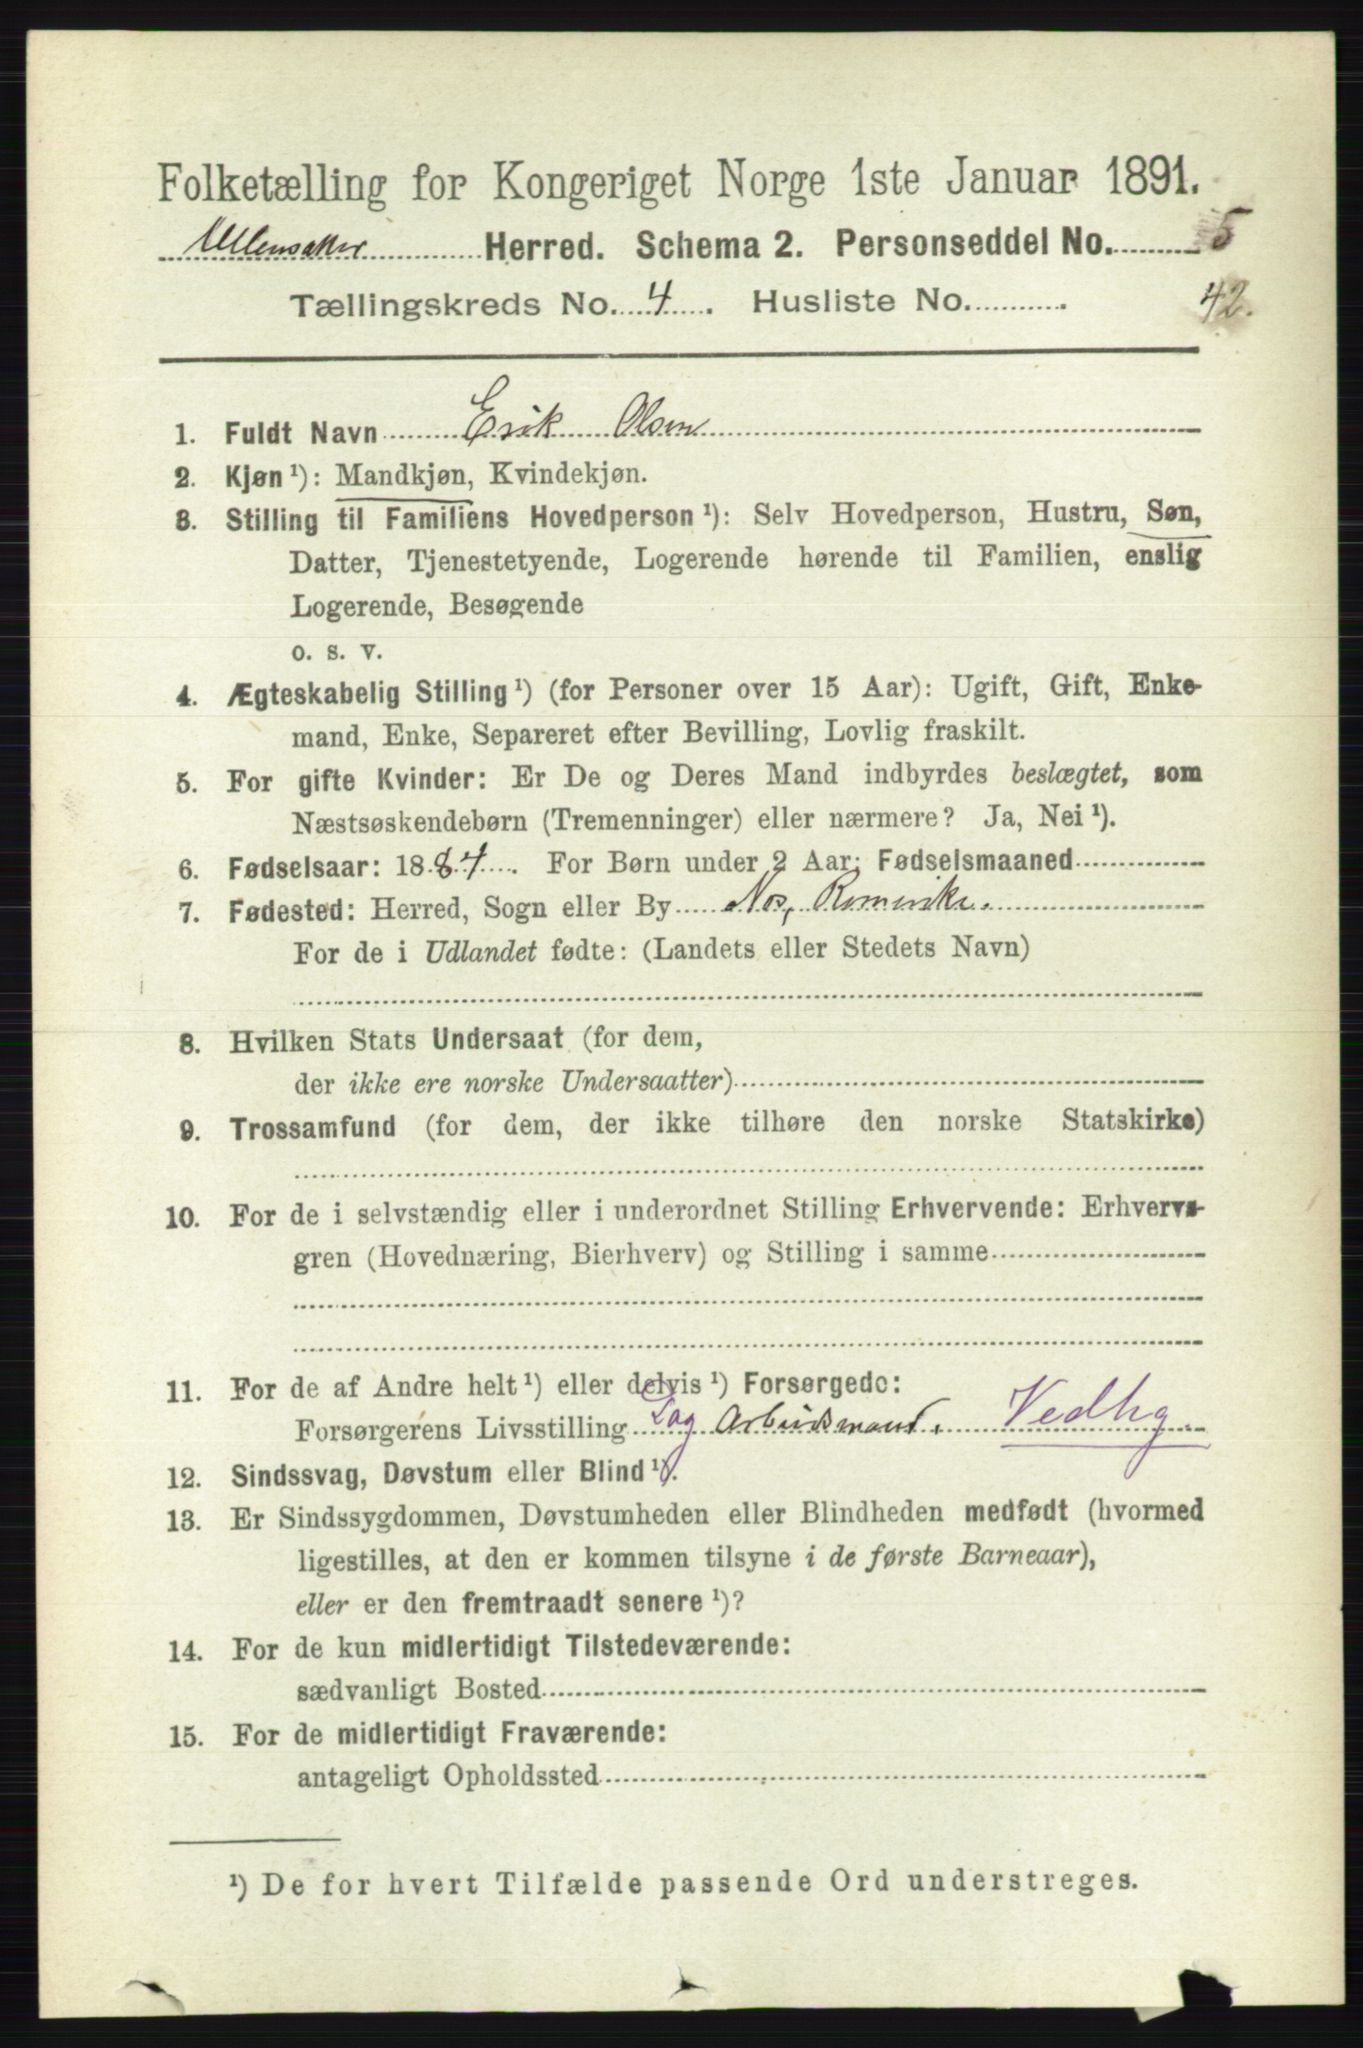 Folketælling for Kongeriget Norge 1ste Januar 1891.
Ullensaker Herred. Schema 2. Personseddel No. 5
Tællingskreds No. 4. Husliste No. 42.
1. Fuldt Navn Erik Olsen
2. Kjøn ¹): Mandkjøn, Kvindekjøn.
3. Stilling til Familiens Hovedperson ¹): Selv Hovedperson, Hustru, Søn,
Datter, Tjenestetyende, Logerende hørende til Familien, enslig
Logerende, Besøgende
o. s. v.
4. Ægteskabelig Stilling ¹) (for Personer over 15 Aar): Ugift, Gift, Enke-
mand, Enke, Separeret efter Bevilling, Lovlig fraskilt.
5. For gifte Kvinder: Er De og Deres Mand indbyrdes beslægtet, som
Næstsøskendebørn (Tremenninger) eller nærmere? Ja, Nei ¹).
6. Fødselsaar: 1884. For Børn under 2 Aar: Fødselsmaaned
7. Fødested: Herred, Sogn eller By Nes, Romerike.
For de i Udlandet fødte: (Landets eller Stedets Navn)
8. Hvilken Stats Undersaat (for dem,
der ikke ere norske Undersaatter)
9. Trossamfund (for dem, der ikke tilhøre den norske Statskirke)
10. For de i selvstændig eller i underordnet Stilling Erhvervende: Erhvervs-
gren (Hovednæring, Bierhverv) og Stilling i samme
11. For de af Andre helt ¹) eller delvis ¹) Forsørgede:
Forsørgerens Livsstilling Dag Arbeidsmand. Vedhg.
12. Sindssvag, Døvstum eller Blind ¹).
13. Er Sindssygdommen, Døvstumheden eller Blindheden medfødt (hvormed
ligestilles, at den er kommen tilsyne i de første Barneaar),
eller er den fremtraadt senere ¹)?
14. For de kun midlertidigt Tilstedeværende:
sædvanligt Bosted
15. For de midlertidigt Fraværende:
antageligt Opholdssted
¹) De for hvert Tilfælde passende Ord understreges.